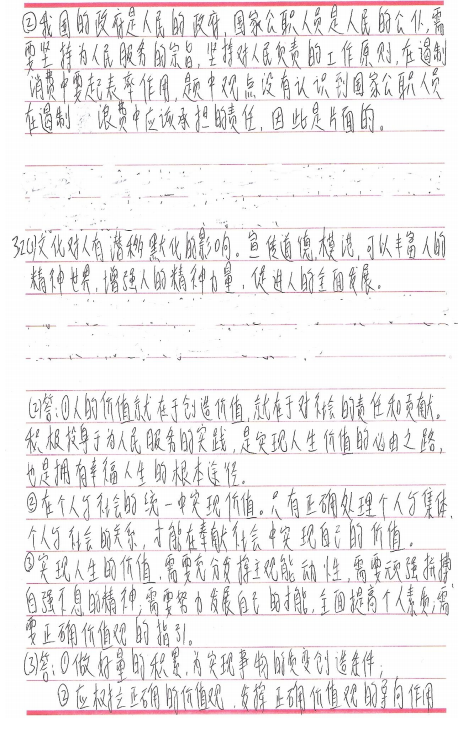 ②我国的政府是人民的政府,国家公职人员是人民的公仆,需
要坚持为人民服务的宗旨,坚持对人民负责的工作原则,在遏制
消费中要起表率作用,题中观点没有认识到国家公职人员
在遏制 浪费中应该承担的责任,因此是片面的。
32(1)文化对人有潜移默化的影响。宣传道德模范,可以丰富人的
精神世界,增强人的精神力量,促进人的全面发展。
(2)答:①人的价值就在于创造价值,就在于对社会的责任和贡献。
积极投身于为人民服务的实践,是实现人生价值的必由之路,
也是拥有幸福人生的根本途径。
②在个人与社会的统一中实现价值。只有正确处理个人与集体,
个人与社会的关系,才能在奉献社会中实现自己的价值。
③实现人生的价值,需要充分发挥主观能动性,需要顽强拼搏,
自强不息的精神,需要努力发展自己的才能,全面提高个人素质,需
要正确价值观的指引。
(3)答:①做好量的积累,为实现事物的质变创造条件;
②应树立正确的价值观,发挥正确价值观的导向作用